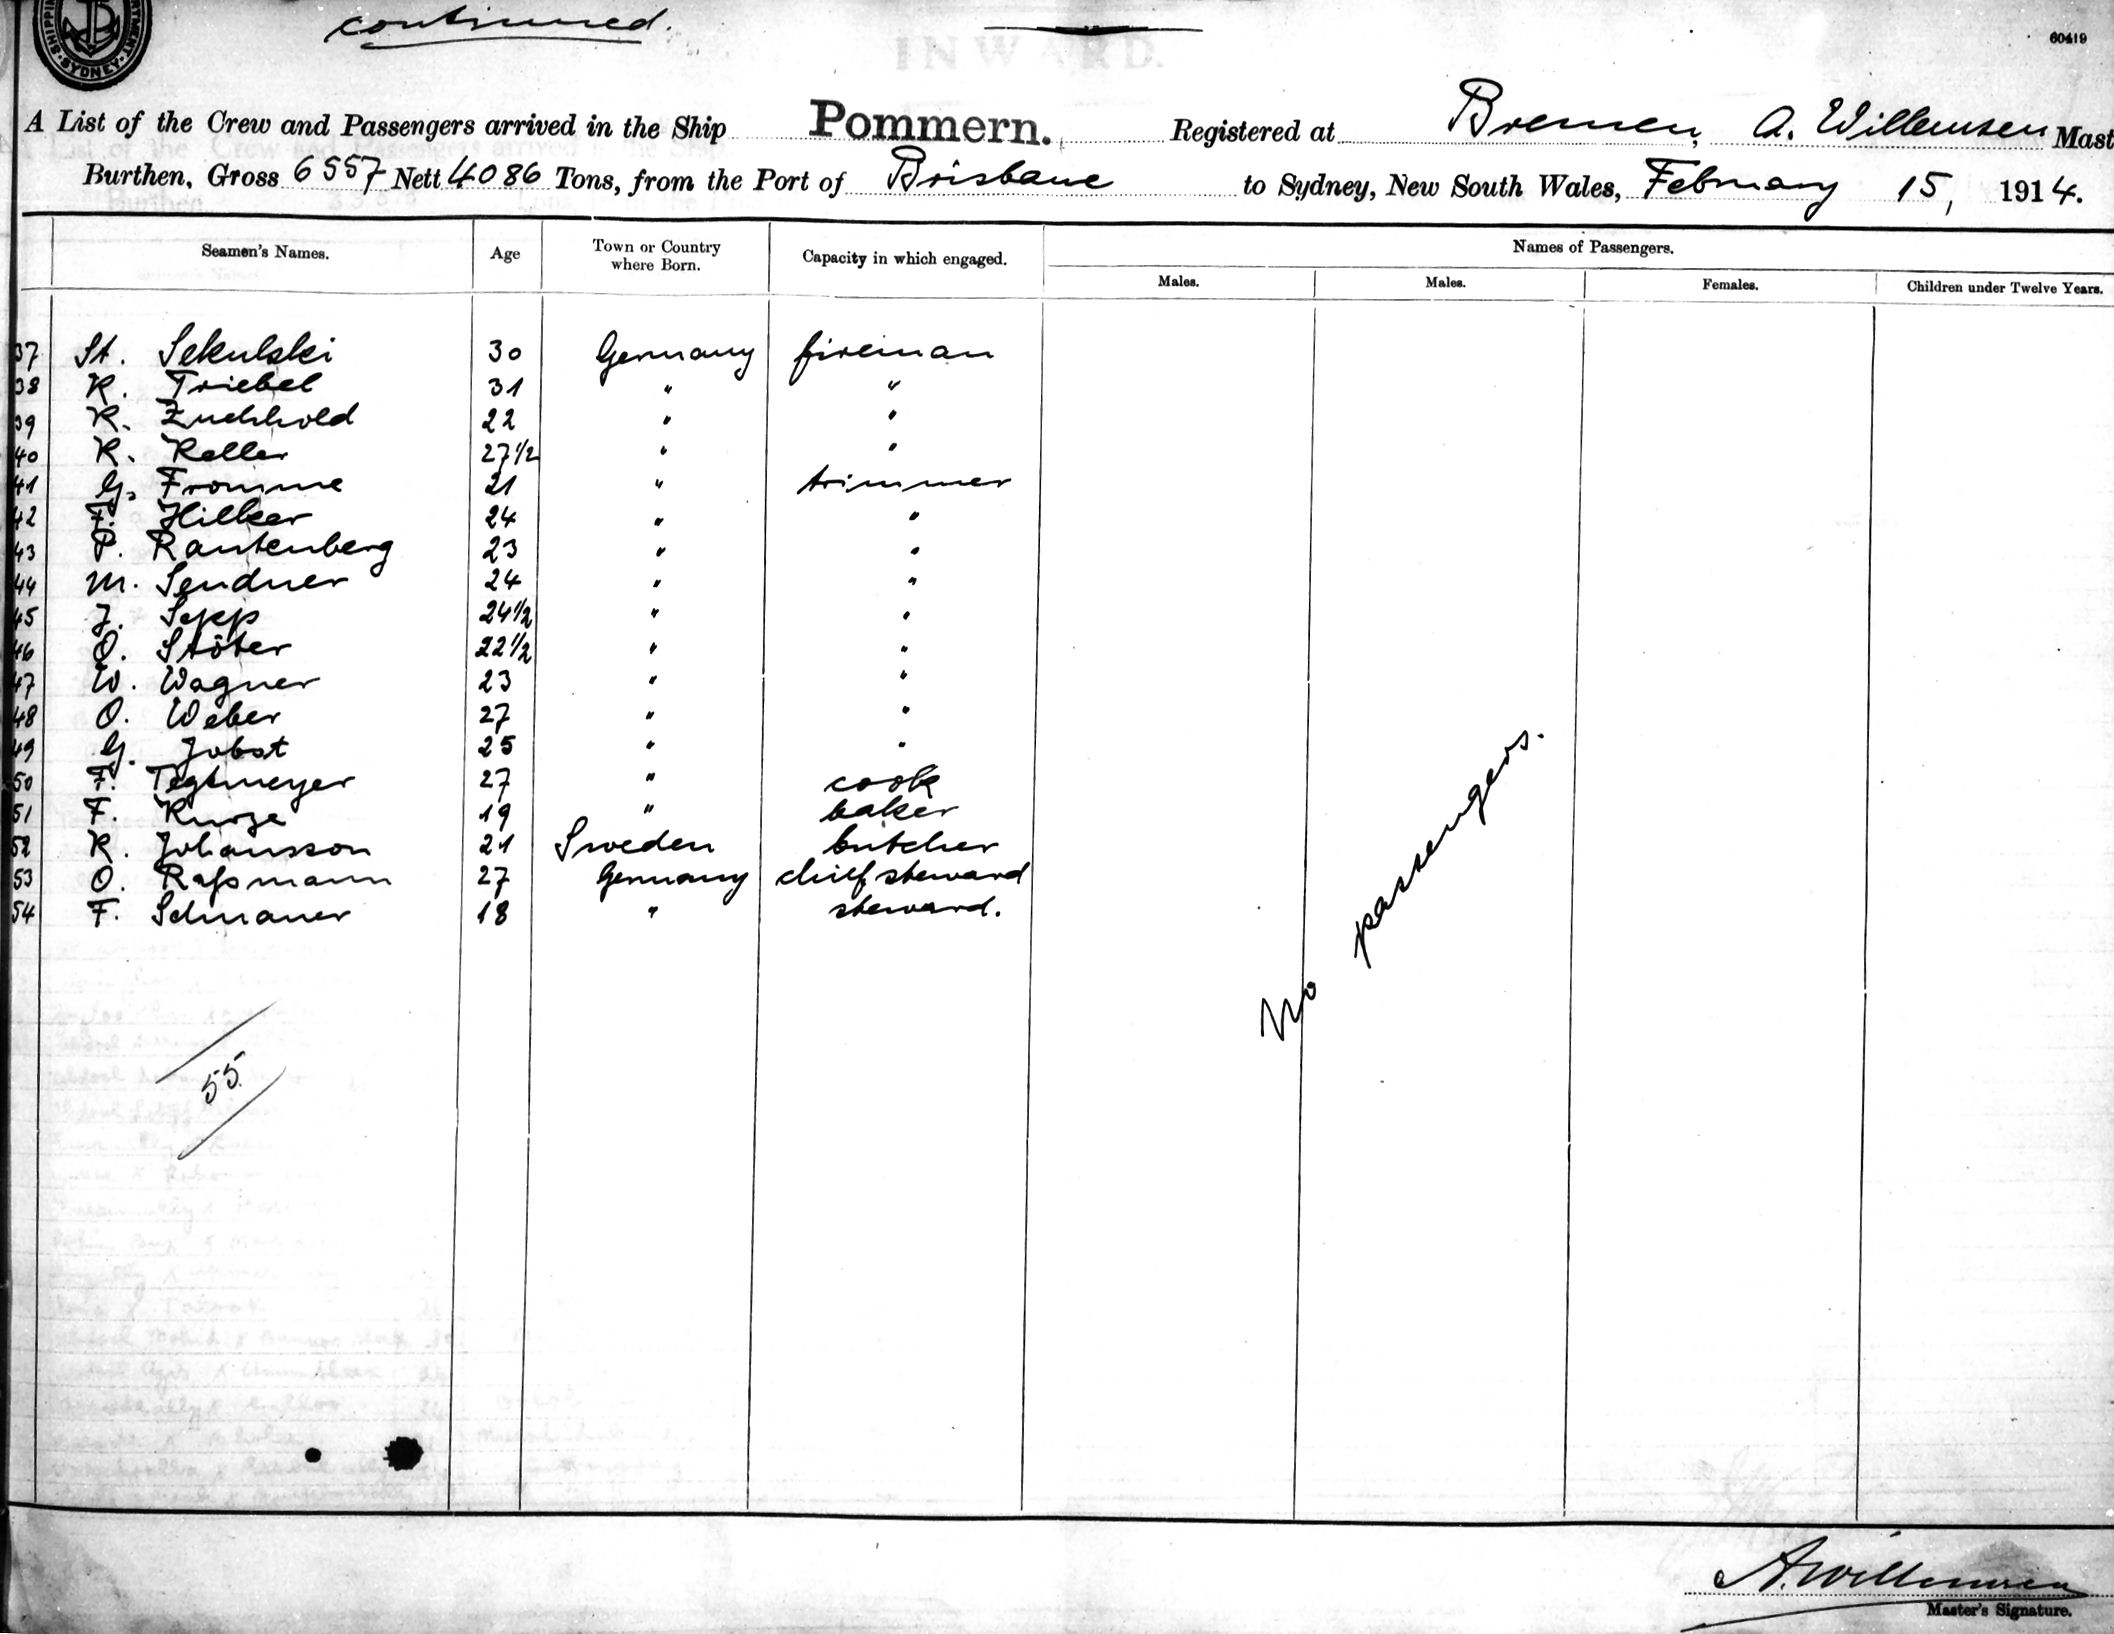 continued.
60419
SYDNEY
A List of the Crew and Passengers arrived in the Ship Pommern. Registered at Bremen, A. Willemsen Mast
Burthen, Gross 6557 Nett 4086 Tons, from the Port of Brisbane to Sydney, New South Wales, February 15, 1914.
Seamen's Names. Age Town or Country where Born. Capacity in which engaged. Names of Passengers.
Males. Males. Females. Children under Twelve Years.
37 St. Sekulski 30 Germany fireman
38 K. Triebel 31 " "
39 K. Zuchhold 22 " "
40 K. Keller 27 1/2 " "
41 G. Fromme 21 " trimmer
42 F. Hilker 24 " "
43 P. Rautenberg 23 " "
44 M. Sendner 24 " "
45 J. Sepp 24 1/2 " "
46 O. Stöter 22 1/2 " "
47 W. Wagner 23 " "
48 O. Weber 27 " "
49 G. Jobst 25 " "
50 F. Tegtmeyer 27 " cook
51 F. Kurze 19 " baker
52 K. Johansson 21 Sweden butcher
53 O. Raßmann 27 Germany chief steward
54 F. Schnauer 18 " steward.
No passengers.
55
A. Willemsen
Master's Signature.